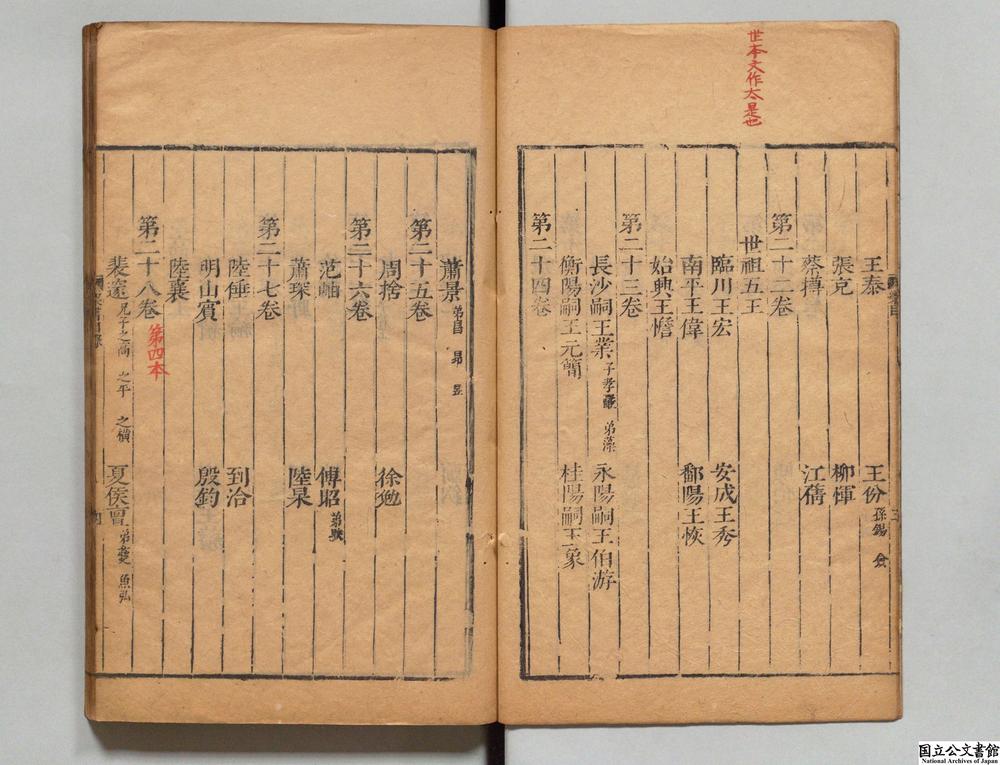 世本文作太是也
王泰　王份 孫錫 僉
張充　柳惲
蔡撙　江蒨
第二十二卷
世祖五王
臨川王宏　安成王秀
南平王偉　鄱陽王恢
始興王憺
第二十三卷
長沙嗣王業 子孝儼 弟藻　永陽嗣王伯游
衡陽嗣王元簡　桂陽嗣王象
第二十四卷
蕭景 弟昌 昂 昱
第二十五卷
周捨　徐勉
第二十六卷
范岫　傅昭 弟映
蕭琛　陸杲
第二十七卷
陸倕　到洽
明山賓　殷鈞
陸襄
第二十八卷
第四本
裴邃 兄子之高 之平 之橫　夏侯亶 弟夔 魚弘
国立公文書館
National Archives of Japan